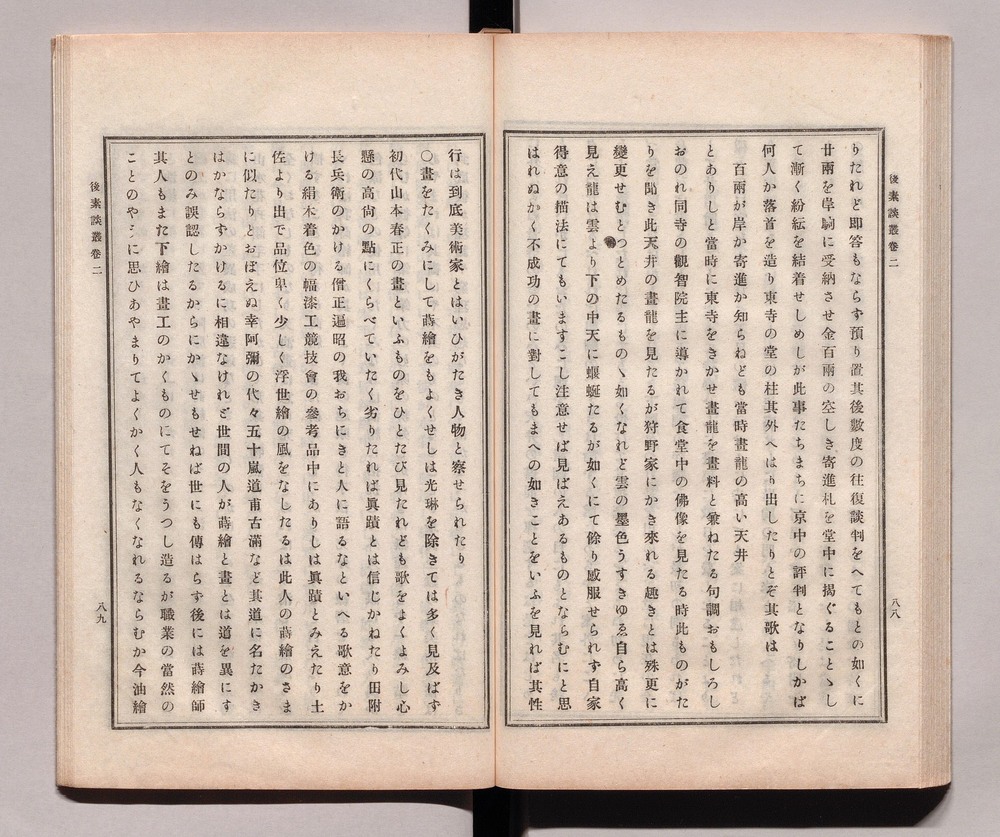 後素談叢卷二
八八
りたれど即答もならず預り置其後數度の往復談判をへてもとの如くに
廿兩を岸駒に受納させ金百兩の空しき寄進札を堂中に揭ぐることゝし
て漸く紛紜を結着せしめしが此事たちまちに京中の評判となりしかば
何人か落首を造り東寺の堂の柱其外へはり出したりとぞ其歌は
百兩が岸か寄進か知らねども當時畫龍の高い天井
とありしと當時に東寺をきかせ畫龍を畫料と兼ねたる句調おもしろし
おのれ同寺の觀智院主に導かれて食堂中の佛像を見たる時此ものがた
りを聞き此天井の畫龍を見たるが狩野家にかき來れる趣きとは殊更に
變更せむとつとめたるものゝ如くなれど雲の墨色うすきゆゑ自ら高く
見え龍は雲より下の中天に蝘蜒たるが如くにて餘り感服せられず自家
得意の描法にてもいますこし注意せば見ばえあるものとならむにと思
はれぬかく不成功の畫に對してもまへの如きことをいふを見れば其性
行は到底美術家とはいひがたき人物と察せられたり
〇畫をたくみにして蒔繪をもよくせしは光琳を除きては多く見及ばず
初代山本春正の畫といふものをひとたび見たれども歌をよくよみし心
懸の高尙の點にくらべていたく劣りたれば眞蹟とは信じかねたり田附
長兵衛のかける僧正遍昭の我おちにきと人に語るなといへる歌意をか
ける絹本着色の幅漆工競技會の參考品中にありしは眞蹟とみえたり土
佐より出で品位卑く少しく浮世繪の風をなしたるは此人の蒔繪のさま
に似たりとおぼえぬ幸阿彌の代々五十嵐道甫古滿など其道に名たかき
はかならずかけるに相違なけれど世間の人が蒔繪と畫とは道を異にす
とのみ誤認したるからにかゝせもせねば世にも傳はらず後には蒔繪師
其人もまた下繪は畫工のかくものにてそをうつし造るが職業の當然の
ことのやうに思ひあやまりてよくかく人もなくなれるならむか今油繪
後素談叢卷二
八九